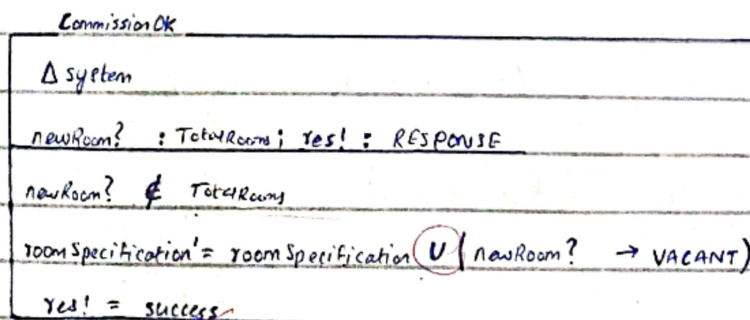 CommissionOK
Δ system
newRoom? : TotalRooms; res! : RESPONSE
newRoom? ∉ TotalRooms
roomSpecification' = roomSpecification U (newRoom? → VACANT)
res! = success